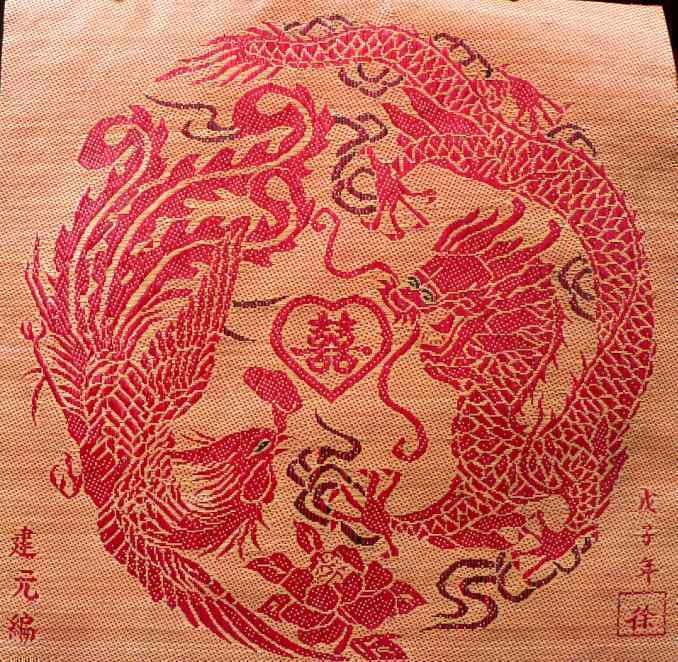 囍
戊子年
徐
建元編